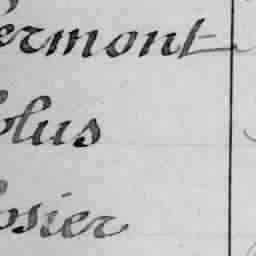 ermont
olus
osier